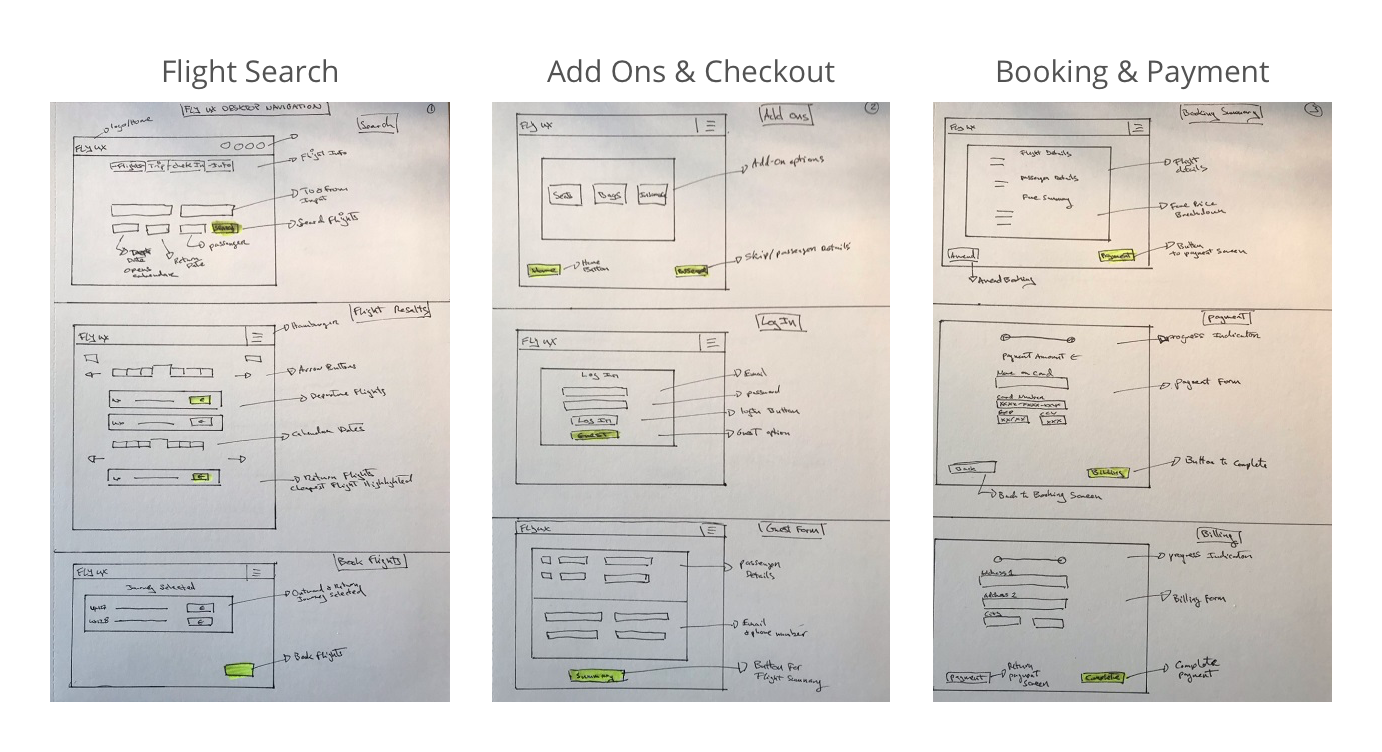 Flight Search
Add Ons & Checkout
Booking & Payment
FLY UX DESKTOP NAVIGATION
1
logo/Home
Search
FLY UX
Flights
Trip
Check In
Info
Flight Info
To & From
Input
Search Flights
passenger
Date
opens
calendar
Return
Date
Flight Results
Hamburger
FLY UX
Arrow Buttons
Departure Flights
Calendar Dates
Return Flights
cheapest Flight Highlighted
Book Flights
FLY UX
Journey Selected
Outbound & Return
Journey Selected
Book Flights
2
Add ons
FLY UX
Add-on options
Seats
Bags
Home
Home
Button
Skip/passenger Details
Log In
FLY UX
Log In
Email
password
login Button
Log In
Guest
Guest option
Guest Form
FLY UX
passenger
Details
Email
& phone number
Summary
Button For
Flight Summary
3
Booking Summary
Fly UX
Flight Details
Passenger Details
Fare Summary
Flight
details
Fare Price
Breakdown
Amend
Payment
Button
to payment screen
Amend Booking
Payment
progress Indicator
Payment Amount €
Name on Card
Payment Form
Card Number
XXXX-XXXX-XXXX
CCV
XX/XX
XXX
Back
Billing
Button to Complete
Back to Booking Screen
Billing
progress Indicator
Address 1
Address 2
City
Billing Form
Payment
Return
payment
screen
Complete
Complete
Payment